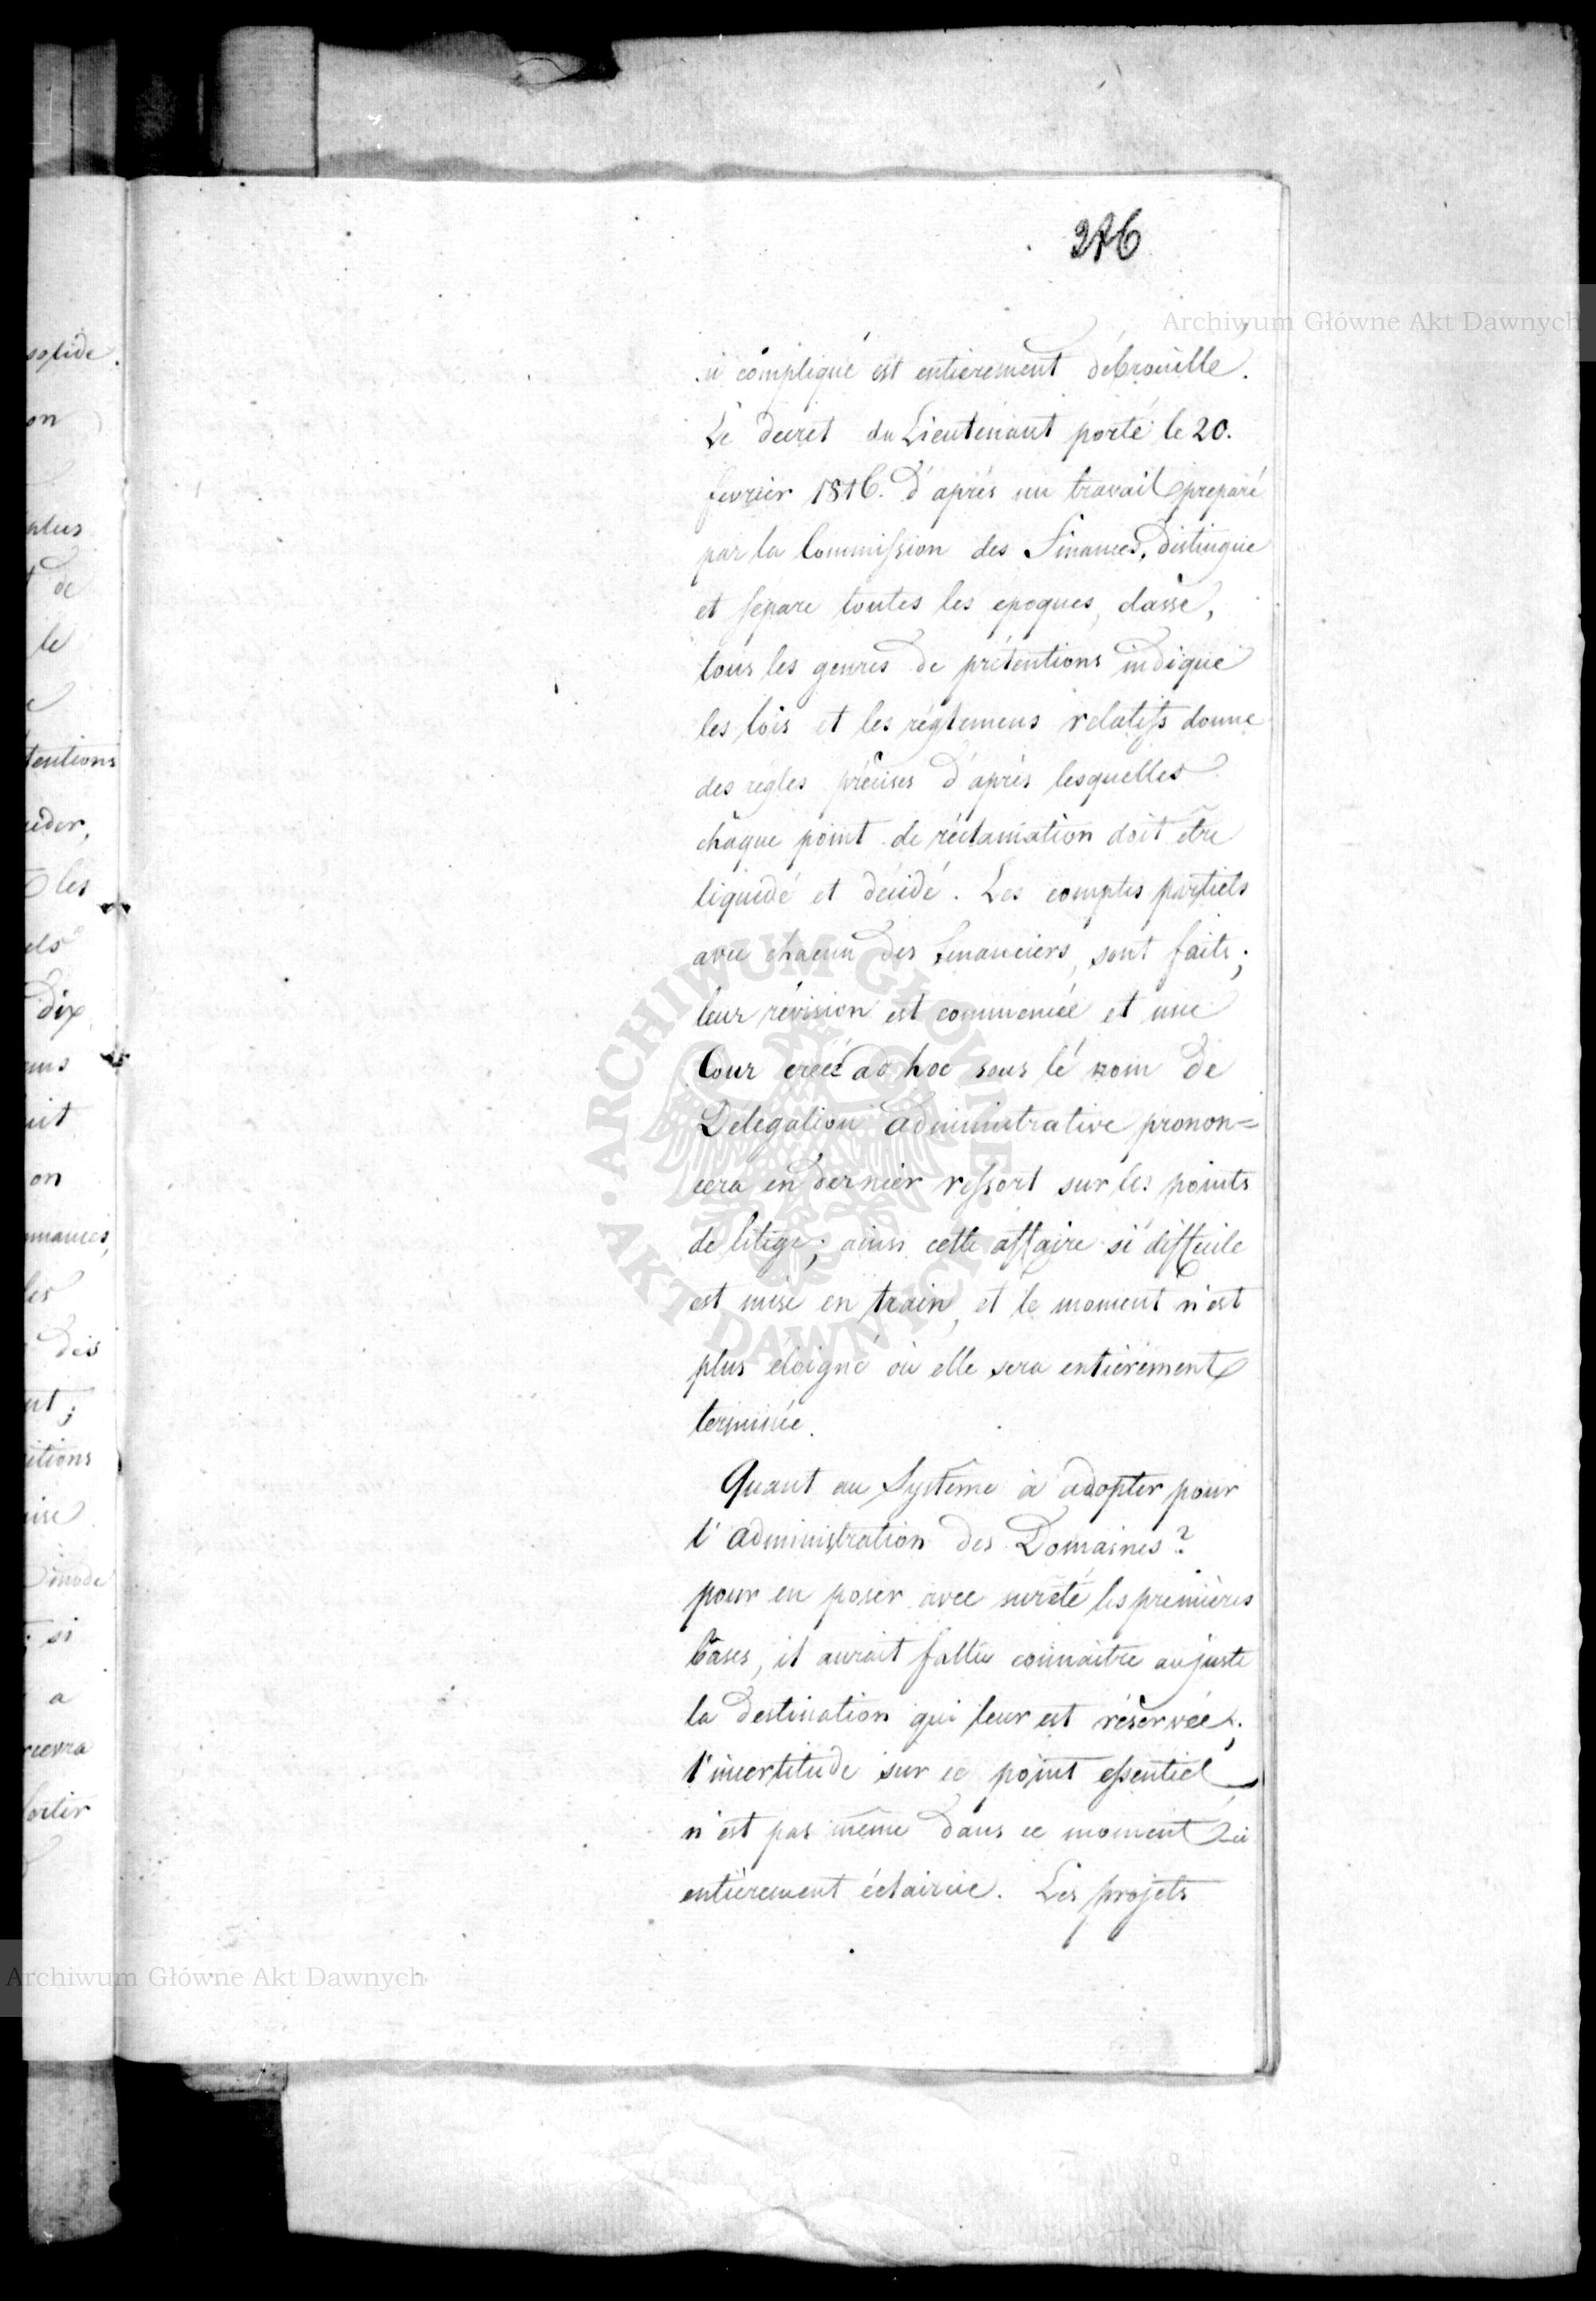 276
Archiwum Główne Akt Dawnych
si compliqué est entierement débrouillé.
Le decret du Lieutenant porté le 20.
fevrier 1816. d'aprés un travail preparé
par la Commission des Finances, distingue
et separe toutes les époques, classe,
tous les genres de prétentions indique
les lois et les réglemens relatifs donne
des régles précises d'aprés lesquelles
châque point de réclamation doit être
liquidé et décidé. Les comptes partiels
avec chacun des financiers, sont faits;
leur révision est commencée et une
Cour créée ad hoc sous le nom de
Délégation administrative pronon=
cera en dernier ressort sur les points
de litige; ainsi cette affaire si difficile
est mise en train, et le moment n'est
plus éloigné où elle sera entièrement
terminée.
Quant au Systême à adopter pour
l'administration des Domaines?
pour en poser avec sureté les premières
bâses, il aurait fallu connaitre au juste
la destination qui leur est réservée;
l'incertitude sur ce point essentiel,
n'est pas même dans ce moment-ci
entièrement éclaircie. Les projets
Archiwum Główne Akt Dawnych
ARCHIWUM GŁÓWNE AKT DAWNYCH
solide.
on
plus
de
le
tentions
les
dix
on
des
si
a